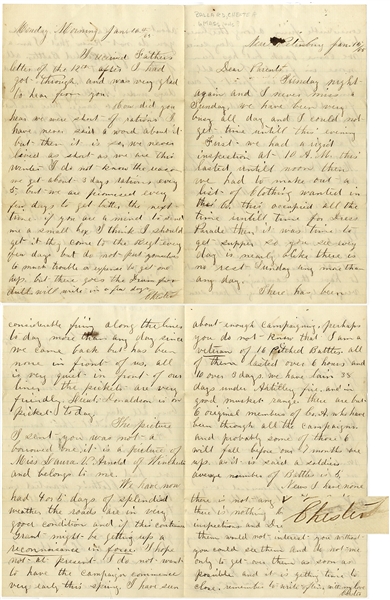 Near Petersburg Jan 15/65
Dear Parents,
Sunday night
again and I never miss a
Sunday, we have been very
busy all day and I could not
get time untill this evening
First we had a rigid
inspection at 10 A.M. this
lasted untill noon then
we had to make out a
list of Clothing wanted in
this Co. this occupied all the
time untill time for Dress
Parade then it was time to
get supper so you see every
day is nearly alike there is
no rest Sunday any more than
any day.
There has been
considerable firing along the lines
to day more than any day since
we came back but has been
none in front of us, all
is very quiet in front of our
lines the pickets are very
friendly. Lieut. Donaldson is on
picket to day.
The picture
I sent you was not a
borrowed one, it is a picture of
Miss Laura C. Arnold of Winchester
and belongs to me.
We have now
had 4 or 5 days of splendid
weather the roads are in very
good conditions and if this continues
Grant might be getting up a
reconnaisance in force, I hope
not at present I do not want
to have the campaign commence
very early this spring. I have seen
about enough campaigning, perhaps
you do not know that I am a
veteran of 16 pitched Battles all
of them lasted over 6 hours and
10 over 3 days. we have lain 35
days under Artillery fire, and in
good musket range, there are but
6 original members of Co. A. who have
been through all the campaigns
and probably some of those 6
will fall before our 7 months are
up, as it is said a soldiers
average number of Battles is 5.
News I have none
there is not any
there is nothing but
inspections and
them would not interest you without
you could see them and do not care
only to get over them as soon as
possible and it is getting time to
close. remember to write often,
Chester
Monday Morning Jan. 16th/65
I received Fathers
letter of the 10th after I had
got through and was very glad
to hear from you.
How did you
hear we were short of rations I
have never said a word about it
but then it is so, we never
lived as short as we are this
Winter I do not know the reason
we get about 3 days rations every
5, but we are promised every
few days to get better the next
time. if you are a mind to send
me a small box I think I should
get it they come to the Regt every
few days but do not put yourselves
to much trouble or expense to get me
up. but there goes the Drum for
drill, will write in a few days.
Chester